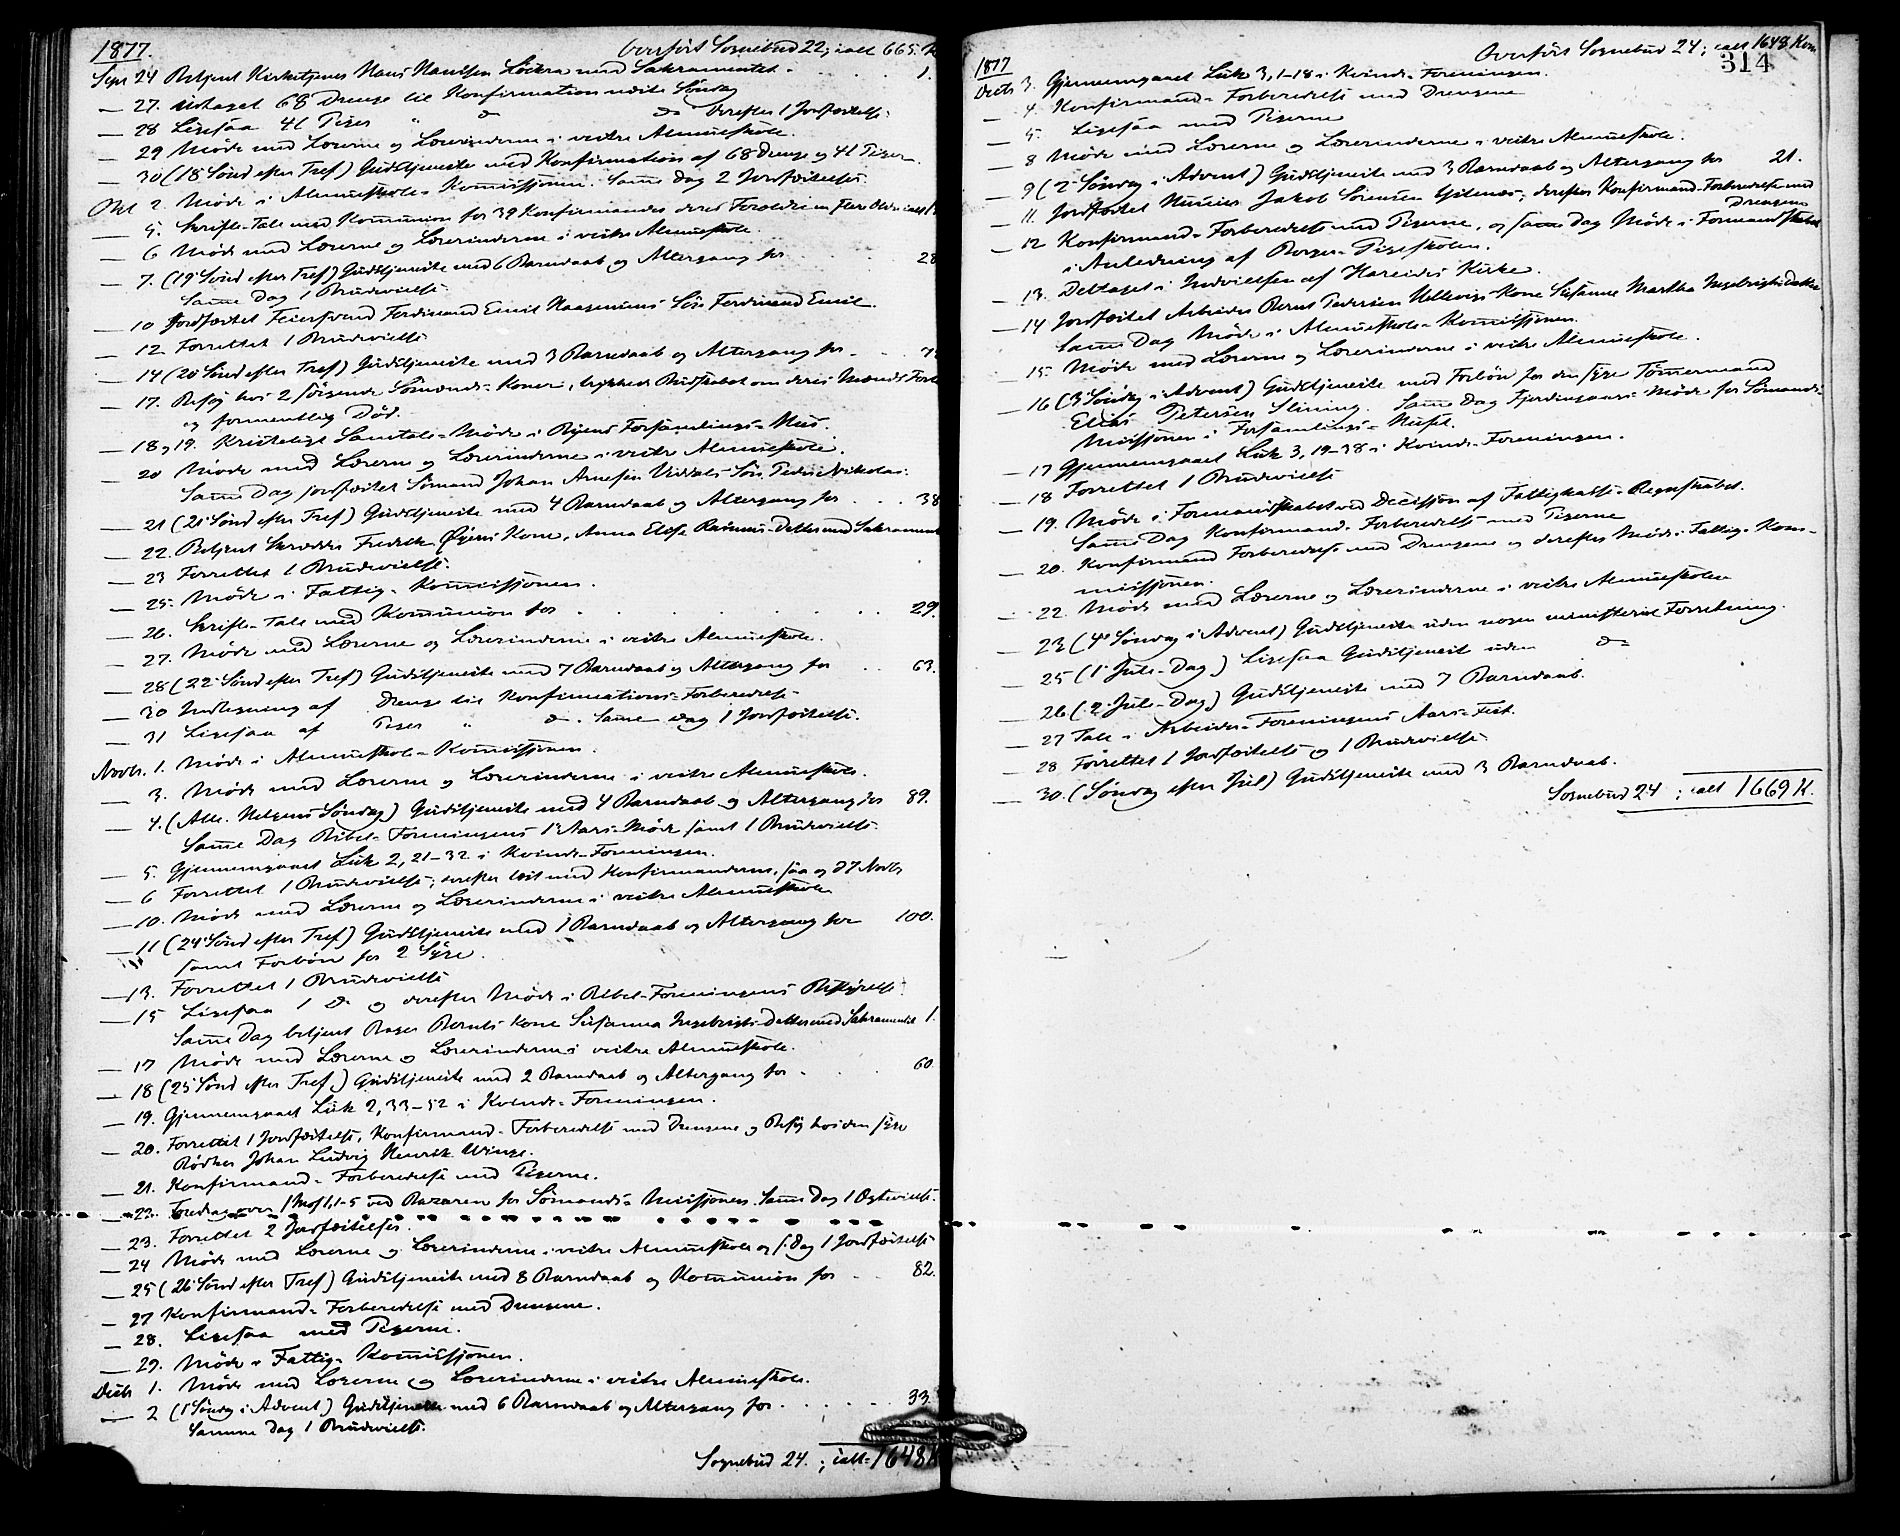 1877. Overført Sognebud 22; ialt 665. K
Sept 24 Betjent Kirketjener Hans Hansen med Sakramentet 1.
— 27. Udtaget 68 Drenge til Konfirmation næste Søndag
— 28 Ligesaa 41 Piger " do do derefter 1 Jordfæstelse.
— 29 Møde med Lærerne og Lærerinderne i vestre Almueskole.
— 30 (18 Sønd efter Tref) Gudstjeneste med Konfirmation af 68 Drenge og 41 Piger.
Okt 2. Møde i Almueskole-Kommissjonen. Samme Dag 2 Jordfæstelser.
— 5. Skrifte-Tale med Kommunion for 39 Konfirmander deres Forældre
— 6 Møde med Lærerne og Lærerinderne i vestre Almueskole.
— 7. (19 Sønd efter Tref) Gudstjeneste med 6 Barnedaab og Altergang for 28
Samme Dag 1 Brudevielse
— 10 Jordfæstet Ferdinand Emil Søn Ferdinand Emil.
— 12. Forrettet 1 Brudevielse
— 14 (20 Sønd efter Tref) Gudstjeneste med 3 Barnedaab og Altergang for
— 17. Besøg hos 2 sørgende Sømænds-Koner, Budskabet om deres Mænds
og formentlig Død.
— 18 og 19. Kristeligt Samtale-Møde i Byens Forsamlings-Hus.
— 20 Møde med Lærerne og Lærerinderne i vestre Almueskole.
Samme Dag jordfæstet Sømand Johan Arnesen Søn Peder Nikolai.
— 21 (21 Sønd efter Tref) Gudstjeneste med 4 Barnedaab og Altergang for 38
— 22. Betjent Skrædder Fredrik Øyens Kone, Anna Elise Rasmus-Datter med Sakrament
— 23 Forrettet 1 Brudevielse.
— 25. Møde i Fattig-Kommissjonen.
— 26. Skrifte-Tale med Kommunion for 29.
— 27. Møde med Lærerne og Lærerinderne i vestre Almueskole.
— 28 (22 Sønd efter Tref) Gudstjeneste med 7 Barnedaab og Altergang for 63.
— 30 Indtegning af Drenge til Konfirmations-Forberedelse
— 31 Ligesaa af Piger " do. Samme Dag 1 Jordfæstelse.
Novb. 1. Møde i Almueskole-Kommissjonen.
— 3. Møde med Lærerne og Lærerinderne i vestre Almueskole.
— 4. (Alle-Helgens Søndag) Gudstjeneste med 4 Barnedaab og Altergang for 89.
Samme Dag Bibel-Foreningens 1 Aars-Møde samt 1 Brudevielse.
— 5. Gjennemgaaet Luk 2, 21-32 i Kvinde-Foreningen.
— 6 Forrettet 1 Brudevielse; derefter læst med Konfirmanderne, saa og d 7 Novb
— 10. Møde med Lærerne og Lærerinderne i vestre Almueskole
— 11 (24 Sønd efter Tref) Gudstjeneste med 1 Barnedaab og Altergang for 100.
samt Forbøn for 2 Syge.
— 13. Forrettet 1 Brudevielse
— 15 Ligesaa 1 do og derefter Møde i Bibel-Foreningens Bestyrelse.
Samme Dag betjent Bager Bernts Kone Susanna Ingebrigts-Datter med Sakramentet 1.
— 17 Møde med Lærerne og Lærerinderne i vestre Almueskole.
— 18 (25 Sønd efter Tref.) Gudstjeneste med 2 Barnedaab og Altergang for 60
— 19. Gjennemgaaet Luk 2, 33-52 i Kvinde-Foreningen.
— 20. Forrettet 1 Jordfæstelse, Konfirmand-Forberedelse med Drengene og Besøg hos den syge
Bødker Johan Ludvig Henrik Winge.
— 21. Konfirmand-Forberedelse med Pigerne.
— 22. Foredrag over 1 Mos 1, 1-5 ved Bazaren for Sømands-Missjonen. Samme Dag 1 Ægtevielse.
— 23. Forrettet 2 Jordfæstelser.
— 24 Møde med Lærerne og Lærerinderne i vestre Almueskole og s. Dag 1 Jordfæstelse
— 25 (26 Sønd efter Tref) Gudstjeneste med 8 Barnedaab og Kommunion for 82.
— 27 Konfirmand-Forberedelse med Drengene.
— 28. Ligesaa med Pigerne.
— 29. Møde i Fattig-Kommissjonen.
Decb 1. Møde med Lærerne og Lærerinderne i vestre Almueskole.
— 2 (1 Søndag i Advent) Gudstjeneste med 6 Barnedaab og Altergang for 33.
Samme Dag 1 Brudevielse.
Sognebud 24. ; ialt 1648 K
1877 Overført Sognebud 24; ialt 1648 Kom
314
Decb 3. Gjennemgaaet Luk 3, 1-18 i Kvinde-Foreningen.
— 4. Konfirmand-Forberedelse med Drengene
— 5. Ligesaa med Pigerne
— 8 Møde med Lærerne og Lærerinderne i vestre Almueskole.
— 9 (2 Søndag i Advent) Gudstjeneste med 3 Barnedaab og Altergang for 21.
— 11. Jordfæstet Jakob Sørensen; derefter Konfirmand-Forberedelse med
Drengene
— 12 Konfirmand-Forberedelse med Pigerne, og samme Dag Møde i Formandskabet
i Anledning af Borger-Pigeskolen.
— 13. Deltaget i Indvielsen af Hareids Kirke.
— 14 Jordfæstet Arbeider Bernt Pedersen Kone Susanne Martha Ingebrigts Datter
Samme Dag Møde i Almueskole-Kommissjonen.
— 15. Møde med Lærerne og Lærerinderne i vestre Almueskole.
— 16 (3 Søndag i Advent) Gudstjeneste med Forbøn for den syge Tømmermand
Elias Petersen Slining. Samme Dag Fjerdingaars-Møde for Sømands-
Missjonen i Forsamlings-Huset.
— 17 Gjennemgaaet Luk 3, 19-38 i Kvinde-Foreningen.
— 18 Forrettet 1 Brudevielse
— 19. Møde i Formandskabet ved Decissjon af Fattigkasse-Regnskabet.
Samme Dag Konfirmand-Forberedelse med Pigerne
— 20. Konfirmand Forberedelse med Drengene og derefter Møde i Fattig-Kom-
missjonen.
— 22. Møde med Lærerne og Lærerinderne i vestre Almueskole
— 23 (4 Søndag i Advent) Gudstjeneste uden nogen ministeriel Forretning.
— 25 (1 Jule-Dag) Ligesaa Gudstjeneste uden do
— 26 (2 Jule-Dag) Gudstjeneste med 7 Barnedaab.
— 27 Tale i Arbeider-Foreningens Aars-Fest.
— 28 Forrettet 1 Jordfæstelse og 1 Brudevielse
— 30. (Søndag efter Jul) Gudstjeneste med 3 Barnedaab.
Sognebud 24 ; ialt 1669 K.